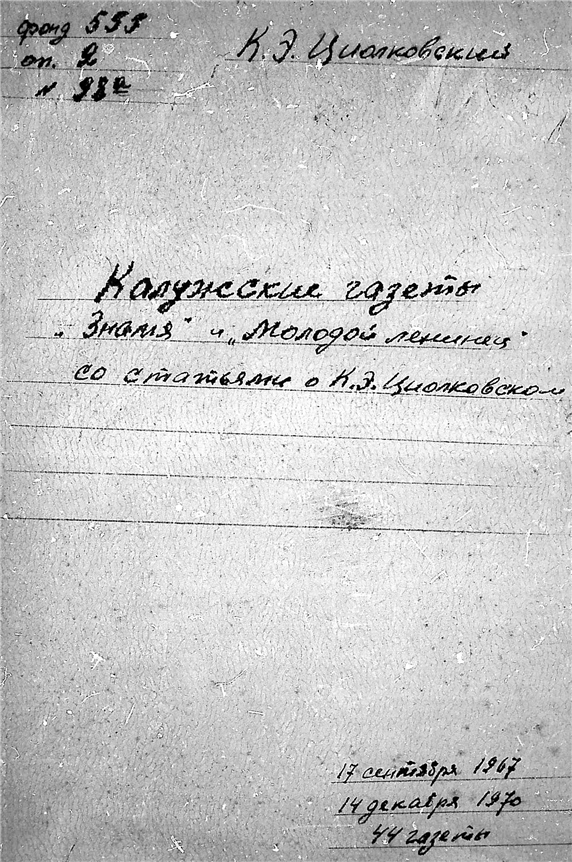 фонд 555
К.Э. Циолковский
оп. 2
N 98а
Калужские газеты
„Знамя" и „Молодой ленинец"
со статьями о К.Э. Циолковском
17 сентября 1967
14 декабря 1970
44 газеты